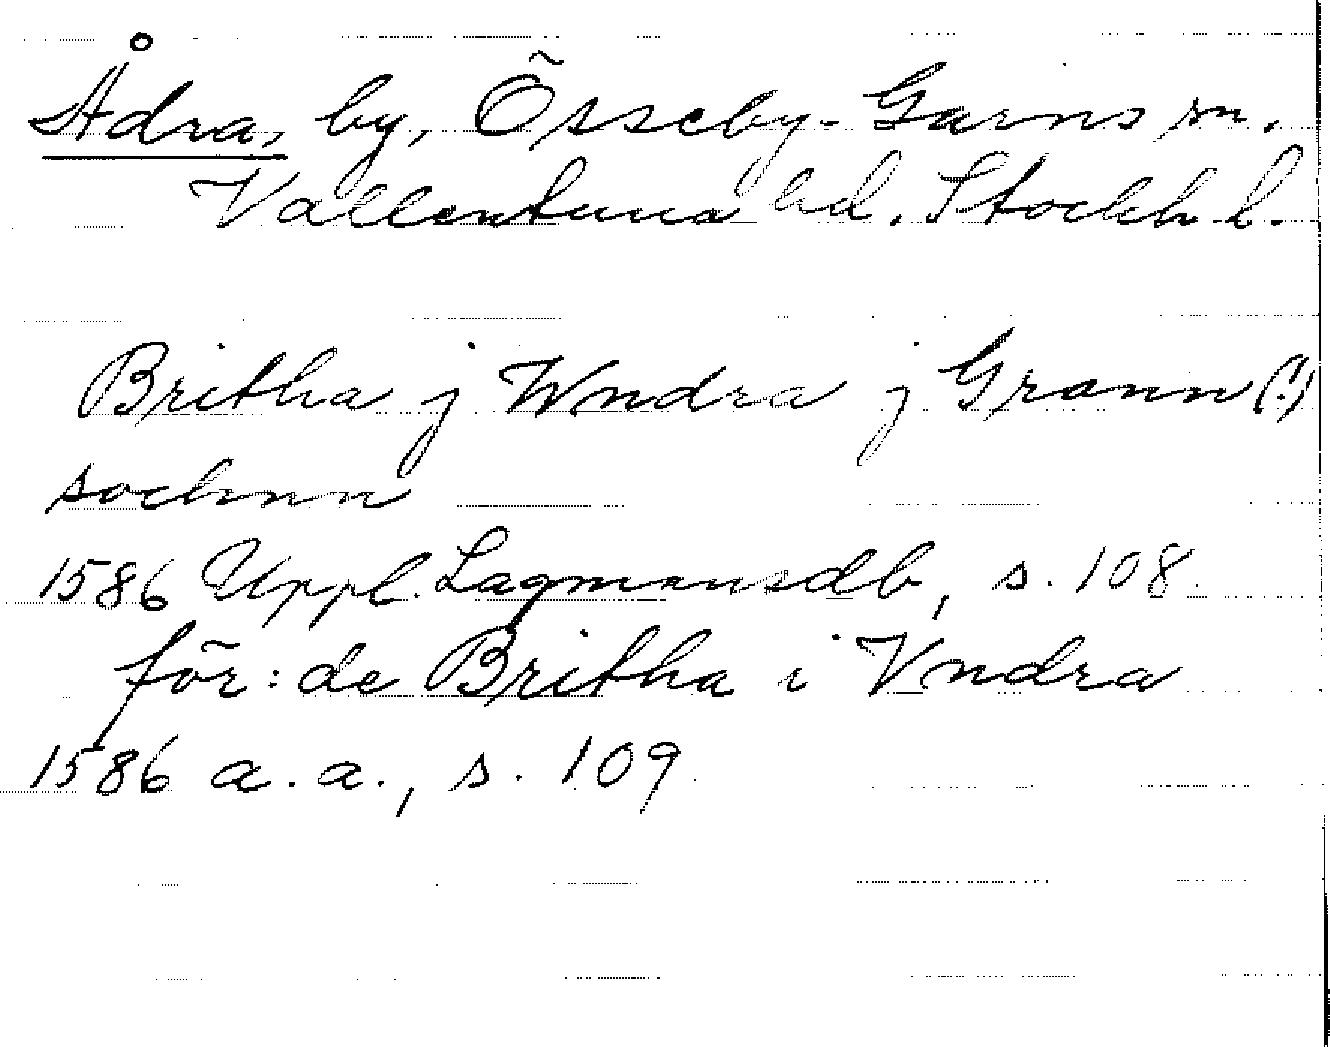 Ådra, by, Össeby-Garns sn.
Vallentuna hd. Stockh. l.
Britha j Wndra j Grann (!)
sochnn
1586 Uppl. Lagmansdb, s. 108.
för: de Britha i Vndra
1586 a. a., s. 109.